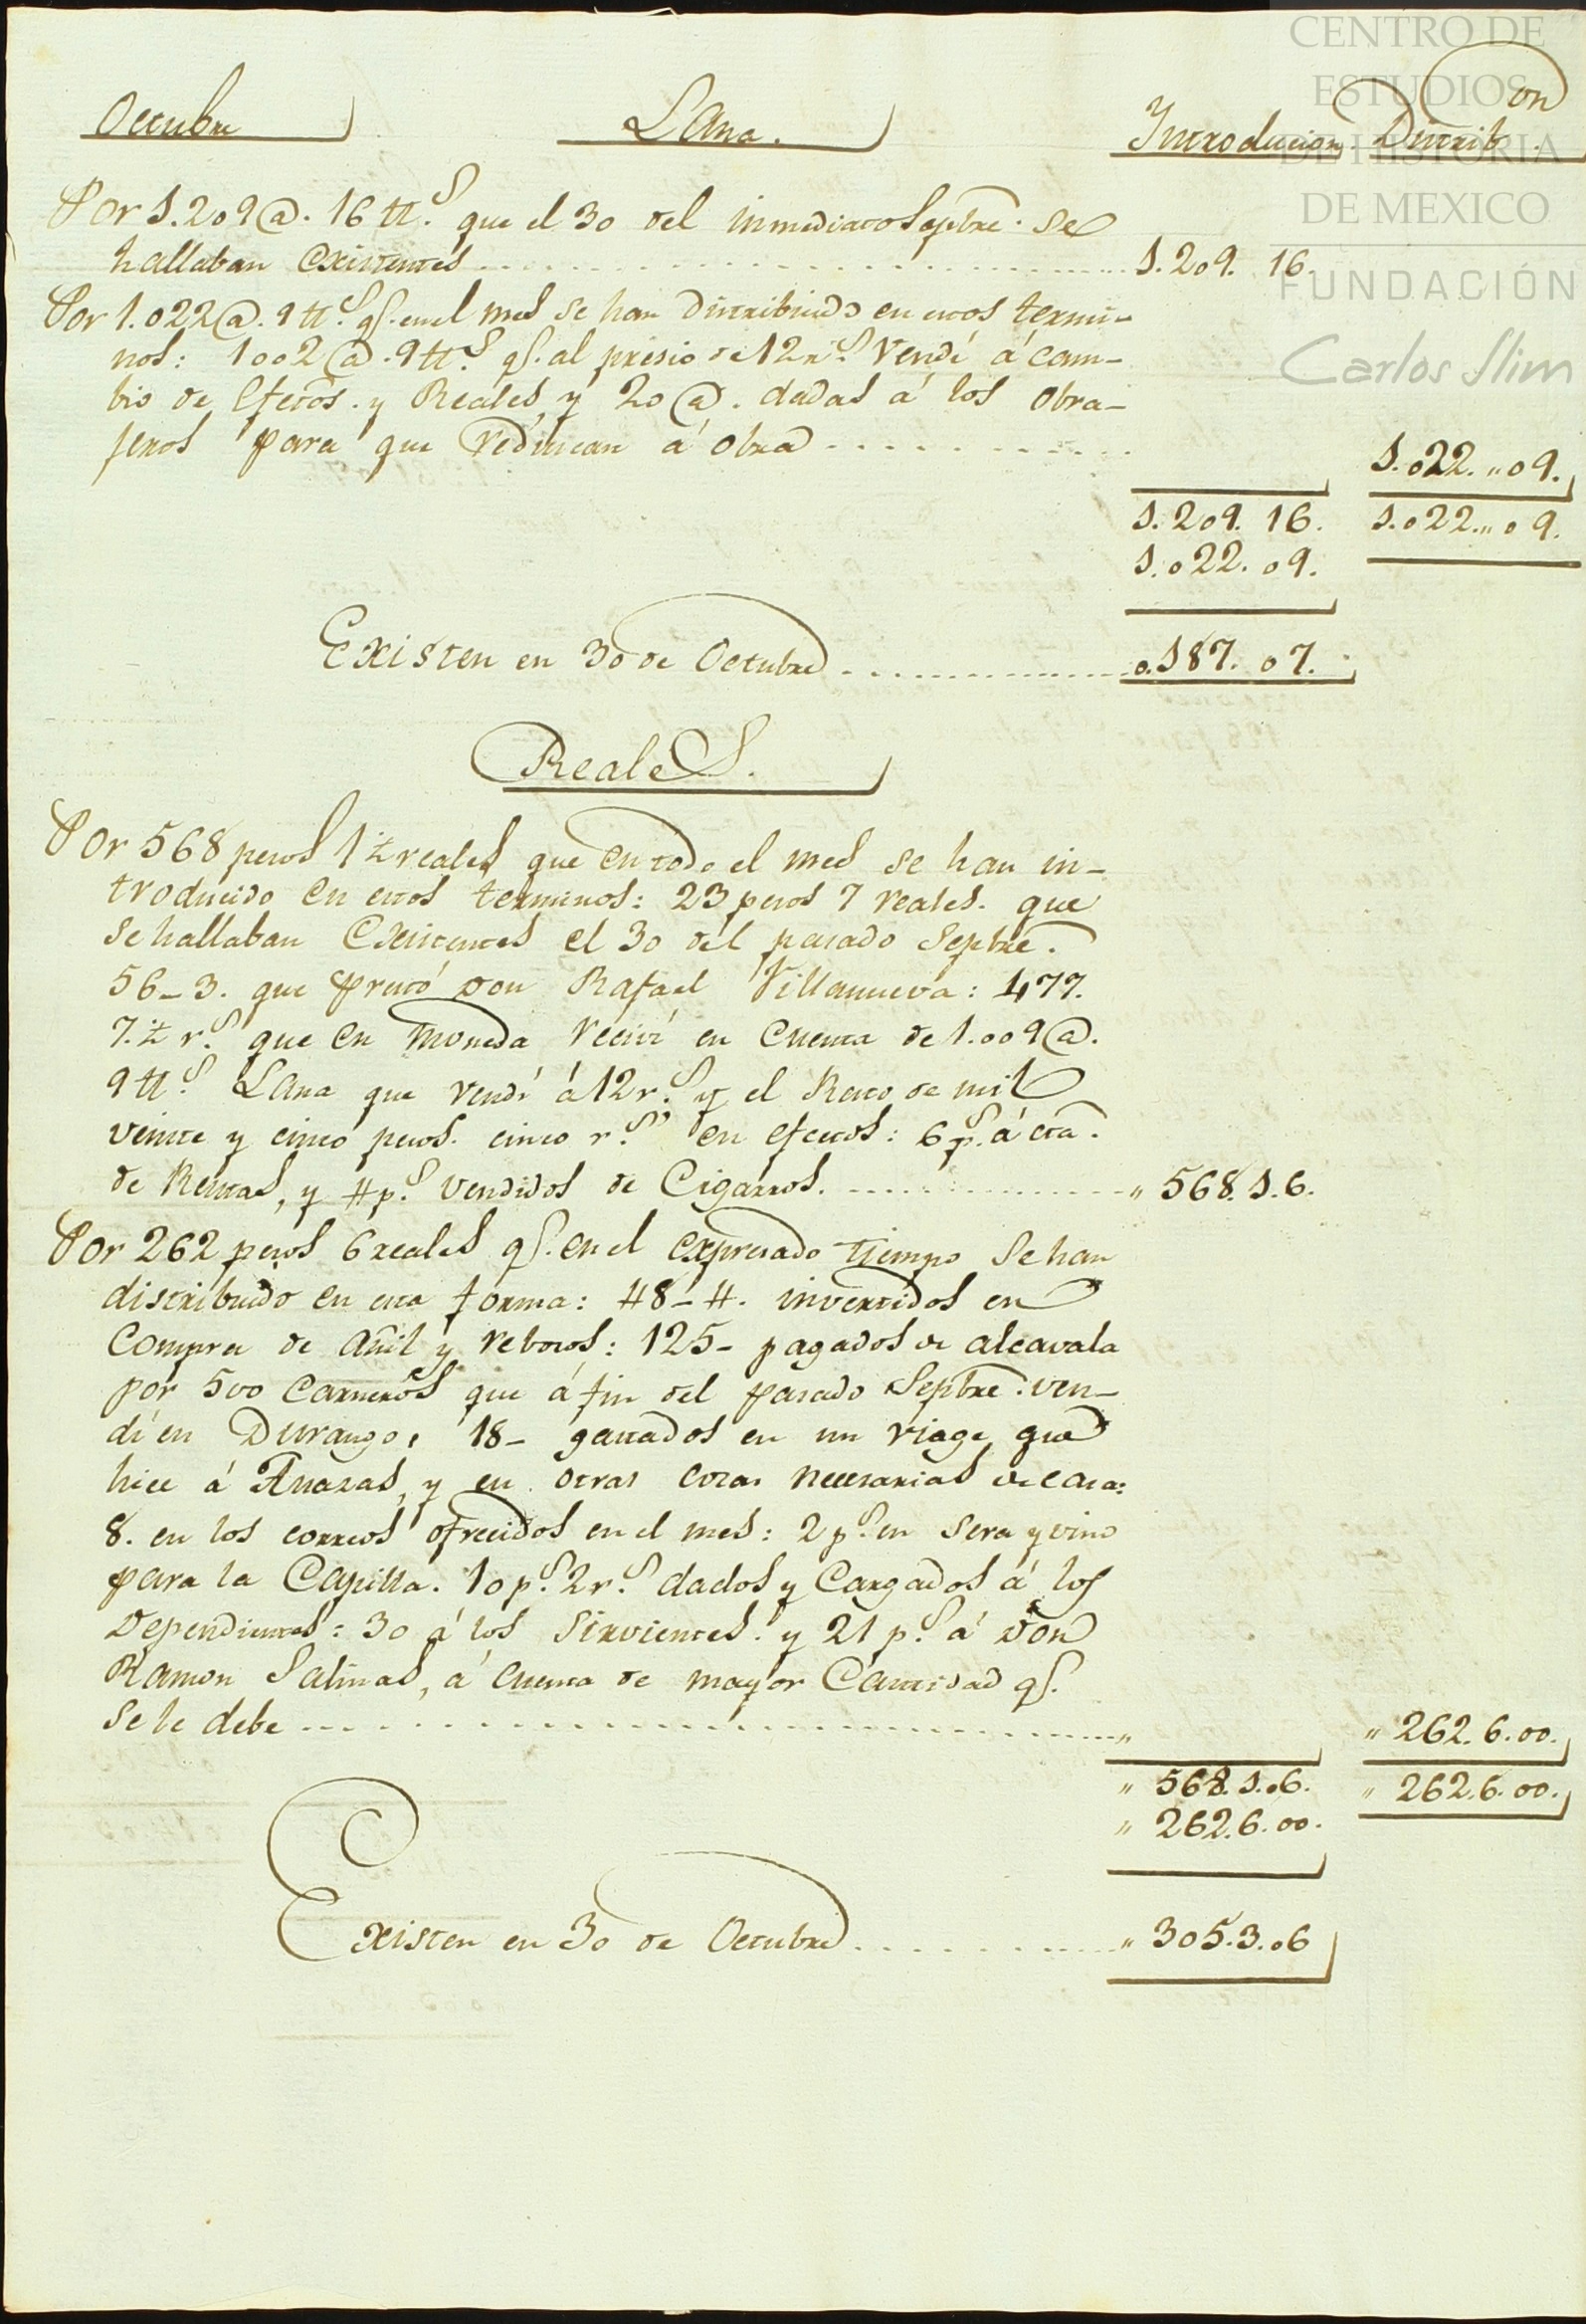 CENTRO DE
ESTUDIOS
DE HISTORIA
DE MEXICO
FUNDACIÓN
Carlos Slim
Octubre Lana. Introducion. Distrib.on
Por 1.209@. 16 tt.s que el 30 del inmediato Septbre. se
hallaban existentes 1.209. 16.
Por 1.022@. 9 tt.s q.e en el mes se han distribuido en estos termi-
nos: 1002@. 9 tt.s q.e al presio de 12 r.s vendí á cam-
bio de efectos. y Reales, y 20@. dadas á los obra-
jeros para que reduscan á obra 1.022. ,, 09.
1.209. 16. 1.022. ,, 09.
1.022. 09.
Existen en 30 de Octubre 0.187. 07.
Reales.
Por 568 pesos 1 1/2 reales que en todo el mes se han in-
troducido en estos terminos: 23 pesos 7 reales. que
se hallaban existentes el 30 del pasado Septbre.
56-3. que prestó Don Rafael Villanueva: 477.
7. 1/2 r.s que en moneda recivi en cuenta de 1.009@.
9 tt.s Lana que vendí á 12 r.s y el Resto de mil
veinte y cinco pesos. cinco r.s en efectos: 6 p.s á cta.
de Rentas, y 4 p.s vendidos de Cigarros. ,, 568. 1. 6.
Por 262 pesos 6 reales q.e en el expresado tiempo se han
distribuido en esta forma: 48-4. invertidos en
compra de añil y rebosos: 125- pagados de alcavala
por 500 Carneros que á fin del pasado Septbre. ven-
dí en Durango, 18- gastados en un viage que
hice á Anazas, y en otras cosas necesarias de casa:
8. en los correos ofrecidos en el mes: 2 p.s en sera y vino
para la Capilla. 10 p.s 2 r.s dados y cargados á los
Dependientes: 30 á los sirvientes. y 21 p.s á Don
Ramon Salinas, á cuenta de mayor Cantidad q.e
se le debe ,, ,, 262. 6. 00.
,, 568. 1. 06. ,, 262. 6. 00.
,, 262. 6. 00.
Existen en 30 de Octubre ,, 305. 3. 06